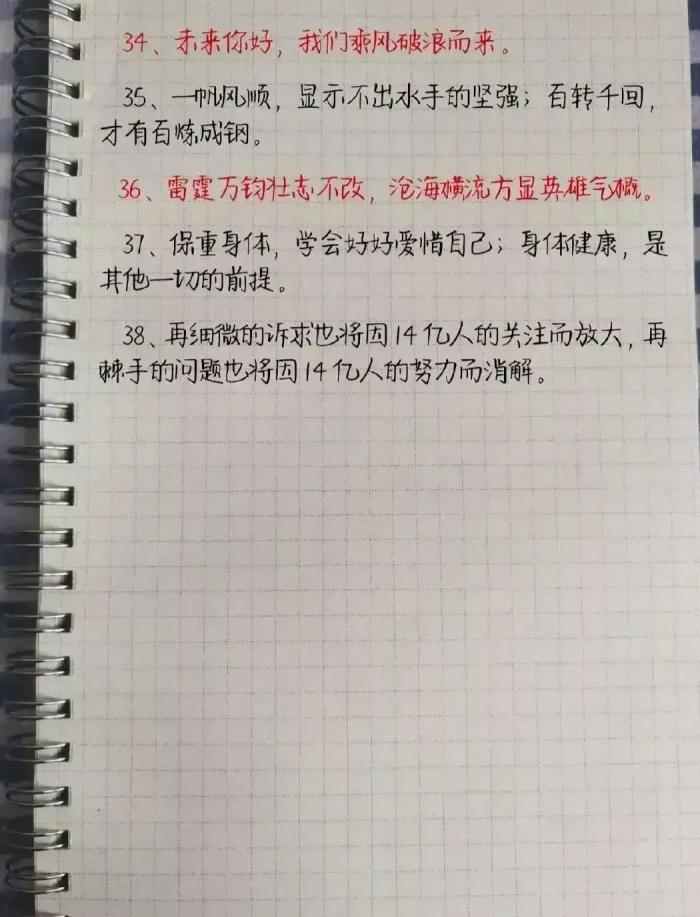 34、未来你好，我们乘风破浪而来。
35、一帆风顺，显示不出水手的坚强；百转千回，
才有百炼成钢。
36、雷霆万钧壮志不改，沧海横流方显英雄气概。
37、保重身体，学会好好爱惜自己；身体健康，是
其他一切的前提。
38、再细微的诉求也将因14亿人的关注而放大，再
棘手的问题也将因14亿人的努力而消解。